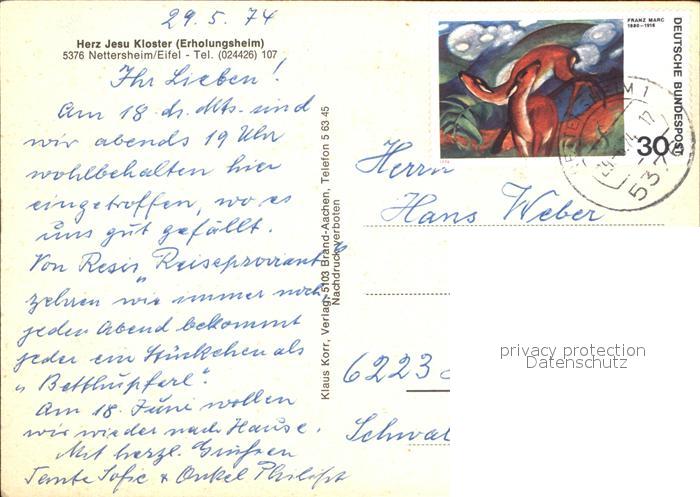 29.5.74
Herz Jesu Kloster (Erholungsheim)
5376 Nettersheim/Eifel - Tel. (024426) 107
Ihr Lieben!
Am 18. ds. Mts. sind
wir abends 19 Uhr
wohlbehalten hier
eingetroffen, wo es
uns gut gefällt.
Von Resis „Reiseproviant"
zehren wir immer noch,
jeden Abend bekommt
jeder ein Stückchen als
„Betthupferl".
Am 18. Juni wollen
wir wieder nach Hause.
Mit herzl. Grüßen
Tante Sofie + Onkel Philipp
Klaus Korr, Verlag, 5103 Brand-Aachen, Telefon 5 63 45
Nachdruck verboten
FRANZ MARC
1880-1916
DEUTSCHE BUNDESPOST
30
1974
537
Herrn
Hans Weber
6223
Schwal
privacy protection
Datenschutz